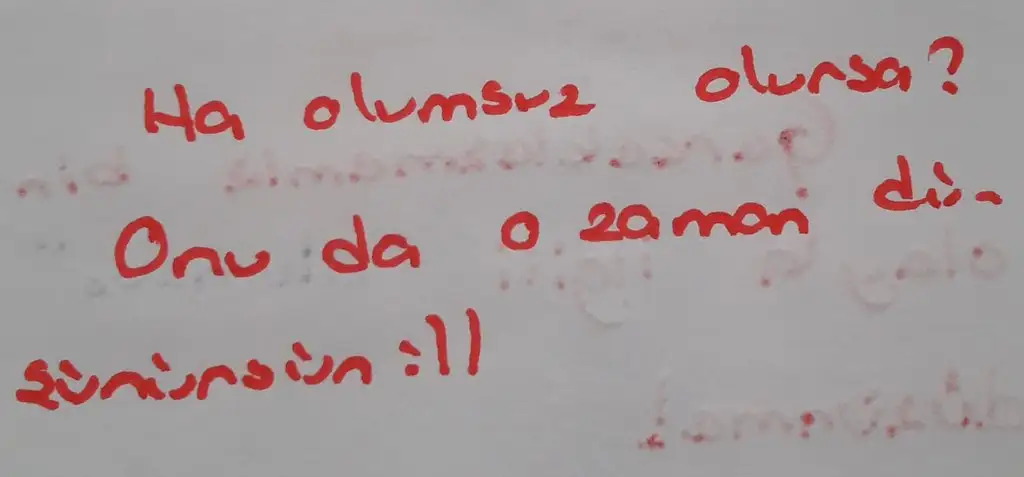 Ha olumsuz olursa?
Onu da o zaman dü-
şünürsün :))